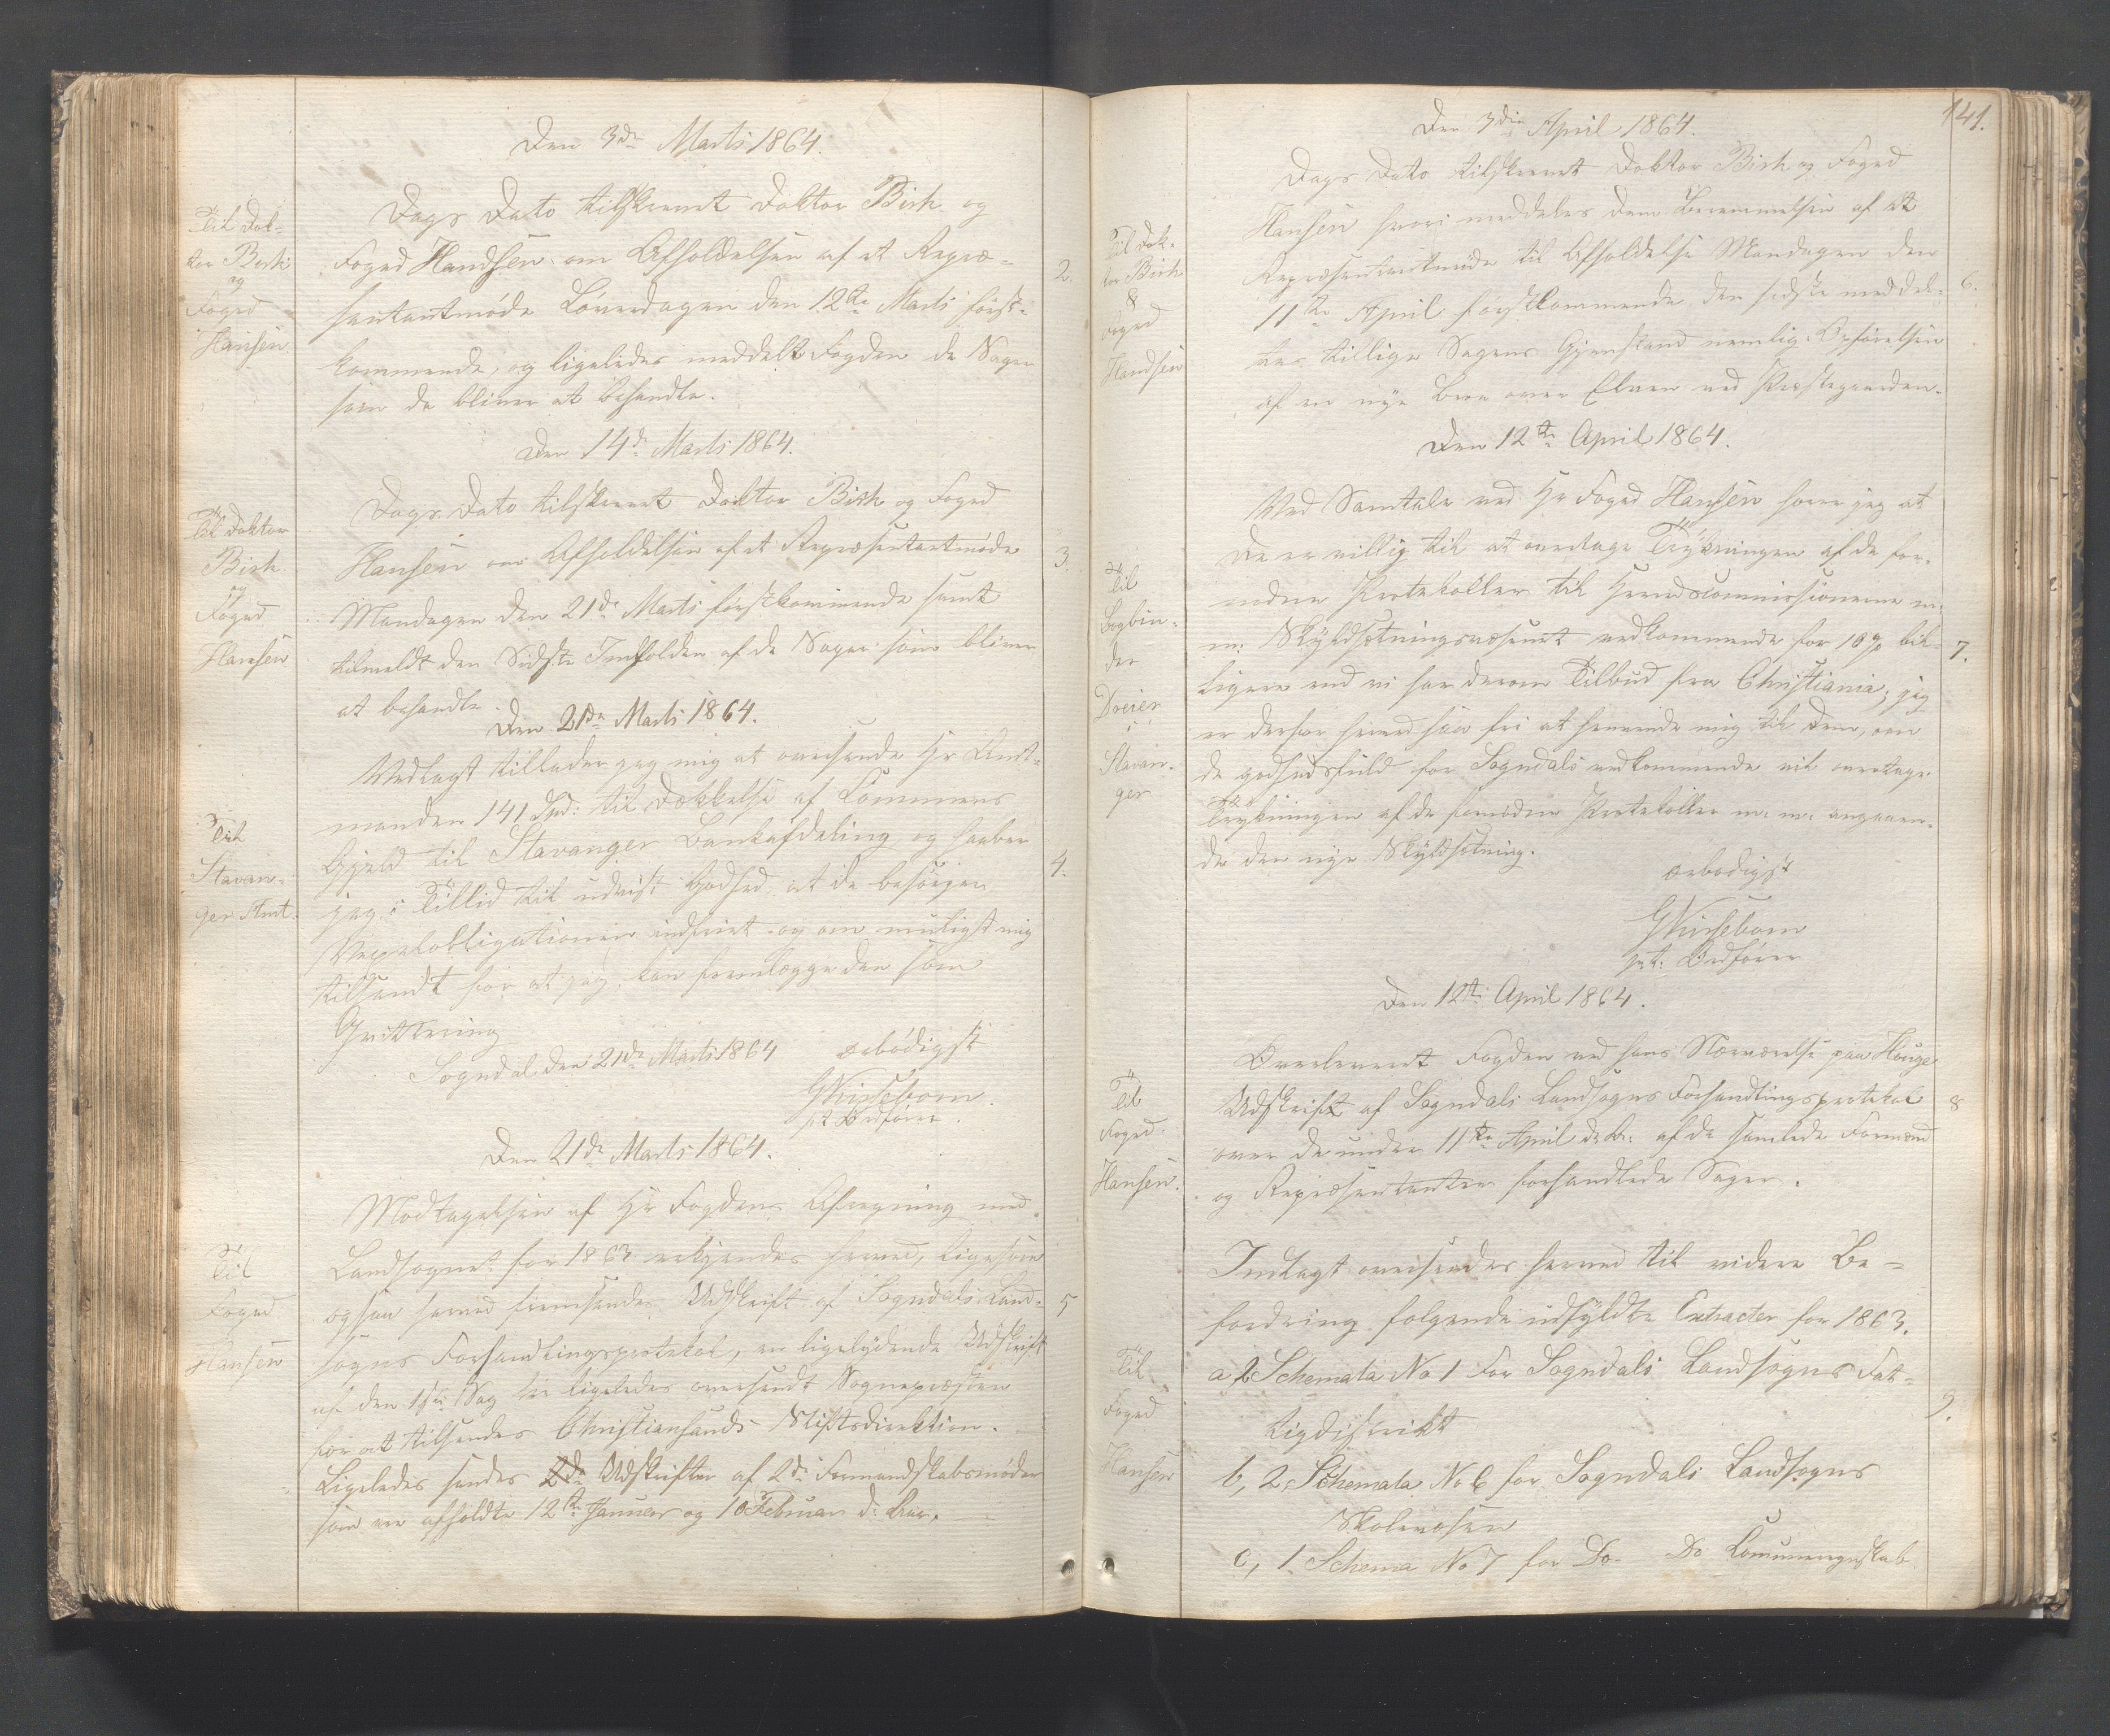 Den 3de Marts 1864.
Til Dok-
tor Birk
og
Foged
Hansen
Dags Dato tilskrevet Doktor Birk og
Foged Handsen om Afholdelsen af et Repræ-
sentantmøde Løverdagen den 12te Marts først-
kommende, og ligeledes meddelt Fogden de Sager
som da bliver at behandle.
2.
Den 14de Marts 1864.
Til Doktor
Birk
og
Foged
Hansen
Dags Dato tilskrevet Doktor Birk og Foged
Hansen om Afholdelsen af et Repræsentantmøde
Mandagen den 21de Marts førstkommende samt
tilmeldt den Sidste Indholden af de Sager som bliver
at behandle.
3.
Den 21de Marts 1864.
Til
Stavan-
ger Amt.
Vedlagt tillader jeg mig at oversende Hr Amt-
manden 141 Spd: til Dækkelse af Communens
Gjeld til Stavanger Bankafdeling og haaber
jeg i Tillid til udvist Godhed at de besørger
Vexelobligationen indfriet og om muligst mig
tilsendt for at jeg kan fremlægge den som
Qvittering
4.
Sogndal den 21de Marts 1864 ærbødigst
GKirseborn.
pt Ordfører.
Den 21de Marts 1864.
Til
Foged
Hansen
Modtagelsen af Hr Fogdens Afregning med
Landsognet for 1863 erkjendes herved, ligesom
ogsaa herved fremsendes Udskrift af Sogndals Land-
sogns Forhandlingsprotokol, en ligelydende Udskrift
af den 1ste Sag er ligeledes oversendt Sognepræsten
for at tilsendes Christiansands Stiftsdirektion.
Ligeledes sendes 2de Udskrifter af 2de Formandskabsmøder
som er afholdte 12te Januar og 10 Februar d: Aar.
5
141.
Den 3die April 1864.
Til Dok-
tor Birk
&
Foged
Handsen
Dags Dato tilskrevet Doktor Birk og Foged
Hansen hvori meddeles dem Berammelsen af et
Repræsentantmøde til Afholdelse Mandagen den
11te April førstkommende, den sidste meddel-
tes tillige Sagens Gjenstand nemlig: Opførelsen
af en nye Broe over Elven ved Præstegaarden.
6.
Den 12te April 1864.
Til
Bogbin-
der
Dreier
i
Stavan-
ger
Ved Samtale med Hr Foged Hansen hører jeg at
De er villig til at overtage Trykningen af de for-
nødne Protokoller til Herredscommissionerne m.
m: Skyldsetningsvæsenet vedkommende for 10% bil-
ligere end vi har derom Tilbud fra Christiania; jeg
er derfor herved saa fri at henvende mig til Dem, om
de godhedsfuld for Sogndals vedkommende vil overtage
Trykningen af de fornødne Protokoller m: m: angaaen-
de den nye Skyldsetning.
7.
ærbødigst
GKirseborn
pt: Ordfører
Den 12te April 1864.
Til
Foged
Hansen.
Overleveret Fogden ved hans Nærværelse paa Hauge
Udskrift af Sogndals Landsogns Forhandlingsprotokol
over de under 11te April d: A: af de samlede Formænd
og Repræsentanter forhandlede Sager.
8
Til
Foged
Hansen
Indlagt oversendes herved til videre Be-
fordring følgende udfyldte Extracter for 1863.
a 2 Schemata No 1 For Sogndals Landsogns Fat-
tigdistrikt
b, 2 Schemata No 6 for Sogndals Landsogns
Skolevæsen
c, 1 Schema No 7 for Do Do Communeregnskab
9.